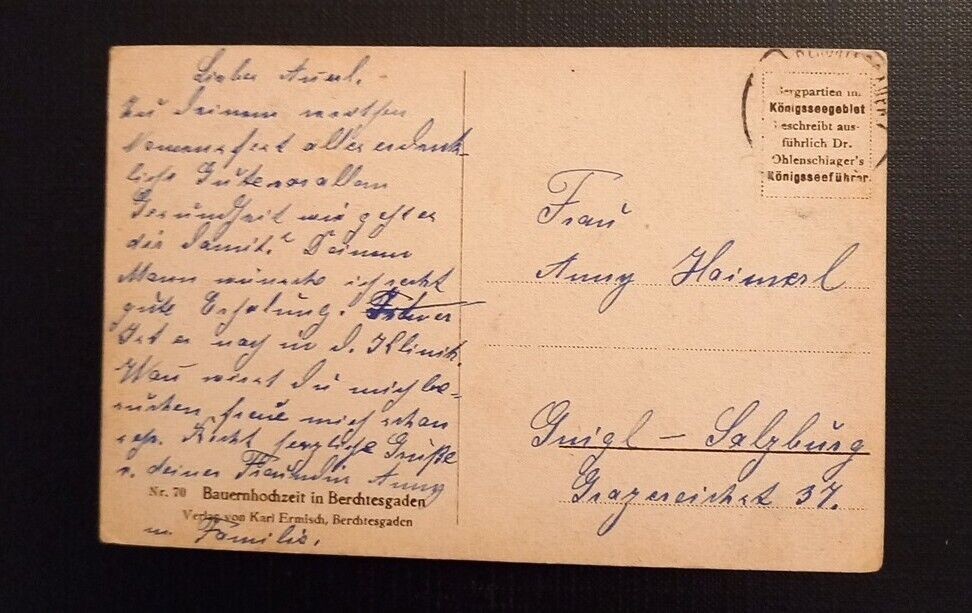 Lieber Annerl.
Zu Deinem werthen
Namensfest alles erdenk
liche Gute vor allem
Gesundheit wie geht es
dir damit? Deinem
Mann wünsche ich recht
gute Erholung.
Ist er noch in d. Klinik.
Wan wirst Du mich be-
suchen, freue mich schon
sehr. Recht herzliche Grüße
v. deiner Freundin Anny
u. Familie.
Nr. 70 Bauernhochzeit in Berchtesgaden
Verlag von Karl Ermisch, Berchtesgaden
Bergpartien im
Königsseegebiet
beschreibt aus-
führlich Dr.
Ohlenschlager's
Königsseeführer.
Frau
Anny Haimerl
Gnigl – Salzburg
Grazereichst 37.